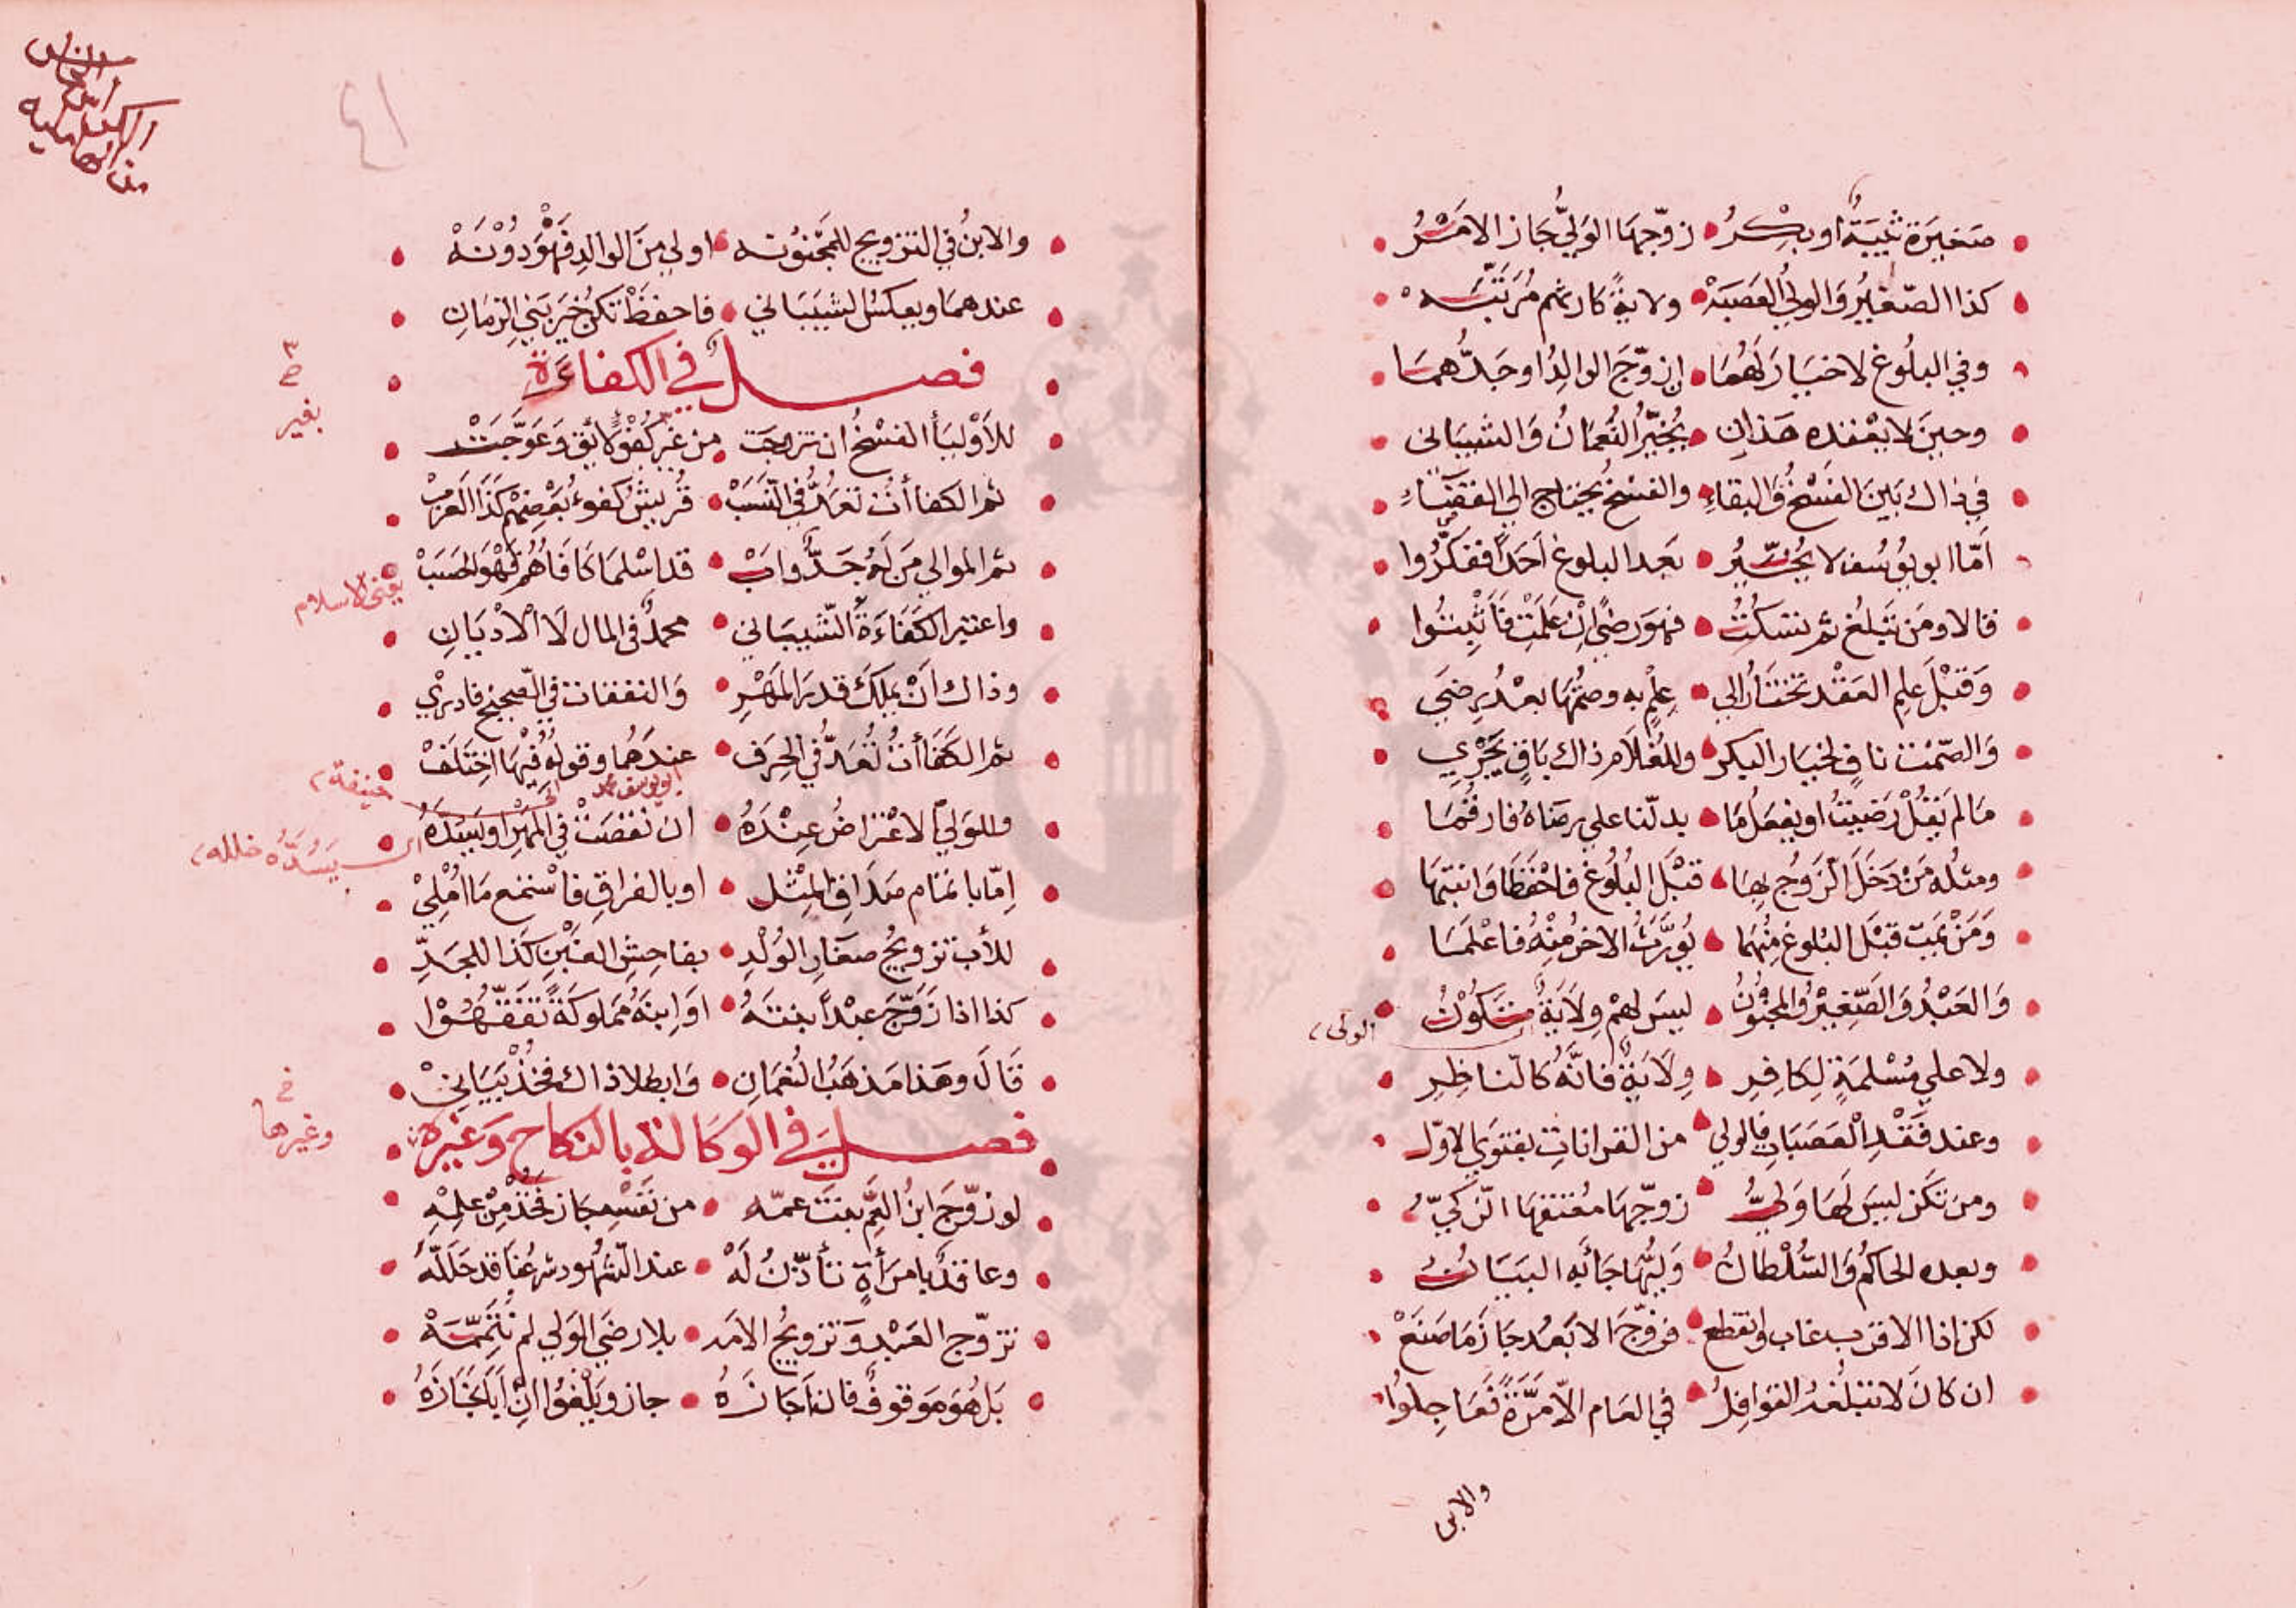 صَغِيرَة ثَيِّبَةٌ أو بِكْرُ زوّجهَا الوَلِيُّ جَاز الامْرُ
كذا الصّغيرُ وَالوليُ العَصَبَةْ ولايةٌ كارثهم مُرَتَّبَه
وفي البلُوغ لا خيَارَ لَهُمَا ان زوّجَ الوالِدُ او جَدُّهما
وحينَ لا يعْقده هَذانِ يُخَيِّرُ النُعمَانُ وَالشيبَانى
في ذاك بَينَ الفَسْخُ وَالبقاءِ والفسْخُ يحتاج الي القضَاءِ
اَمّا ابو يوُسُف لا يُخُيِّرُ بَعد البلوغ اَحَداً ففكرُوا
قالا ومَن تَبلغ ثم تسكُتُ فهوَ رضيً اِنْ عَلمَتْ فَأَثْبِتُوا
وَقبْلَ علِم العَقْد تختَارُ الي عِلْمٍ به وصمْتُهَا بعْدُ رِضَي
وَالصّمْت نافٍ لخيَار البكر وللغُلاَم ذاك بَاقٍ يَجْرِي
مَا لم يَقُلْ رَضِيتُ او يفعَلُ مَا يدلّنا علي رضَاهُ فارقُمَا
ومثلُه مَنْ دَخَلَ الزَوجُ بهَا قبْلَ البُلُوغ فاحْفَظَا وَانتبهَا
وَمَنْ يَمت قبْلَ البُلوغ مِنْهُمَا يُوَرَّثُ الاخرُ مِنْهُ فاعْلَمَا
وَالعَبْدُ وَالصَّغِيْرُ وَالمجْنُونُ ليسَ لهمْ وِلاَيَةٌ تَكُوْنُ
الولى
ولا علي مُسْلمَةٍ لِكافِرِ وِلاَيَةٌ فانّهُ كالنّاظِرِ
وعند فَقْدِ الْعَصَبَاتِ فالولي من القراباتِ بفتوَي الاوّل
ومن تكَن ليسَ لَهَا وَليُّ زوّجهَا مُعتقهَا الزّكيُّ
وبعده الحاكمُ وَالسُّلْطانُ وَليُّهَا جَأَ به البيَانُ
لكن اذا الاقرب غاب وانقطع فزوّجَ الابْعدُ جَازَ مَا صَنَعْ
ان كانَ لا تبلُغهُ القوَافِلُ في العَام الّا مَرَّةً فَعَاجِلوُا
والابن
٤١
والابنُ في التزويج للمَجْنوُنه اولي منَ الوالدِ فَهْوَ دوُنَهْ
عندهمَا وبعكس الشيبَاني فاحفظْ تكن خيرَ بَني الزمَانِ
فصـل في الكفاءَة
للأَوْليَأ الفسْخُ ان تزوجَت من غيْرِ كُفْؤٍ لائق وَعَوَّجَتْ
بغير
ثم الكفاأَت تُعَدُّ في النّسَبْ قُريشٌ كفوءٌ بعْضِهُمْ كَذَا الْعَرَبْ
ثم الموالي مَن لَهُ جَدٌّ وابْ قد اسْلمَا كَافَاهُم فَهْوَ الحَسَبْ
يعنى الاسلام
واعتبر الكَفَاءَةَ الشّيبَاني محمدٌ في المال لاَ الْادْيَانِ
وذاك اَنْ يملِكَ قدرَ المَهْرِ وَالنفقات في الصّحيح فادرِي
ثم الكَفَاأتُ تُعَدُّ في الحِرَف عندَهُما وقولُهُ فِيْهَا اخِتَلَفْ
ابو يوسف محمد
حنيفة
وللوَليِّ لاعْتراضُ عِنْدَهُ ان نقصَتْ في المهْرِ او يَسُدَّهُ
يَسُدَّهُ خلله
اِمّا باتمَام صَدَاقِ المِثل او بالفراقِ فاسْتمع مَا اُمْلِيْ
للأَب تزويجُ صغَار الوُلْدِ بفاحِشِ الغبْنِ كَذا للجَدِّ
كذا اذا زَوّجَ عبْداً بنتَهُ اَو اِبنَهُ مملوكَةً تَفَقَّهُوْا
قَالَ وهَذا مَذهَبُ النُعْمَانِ وَابطلا ذاك فخُذْ بَيَانِيْ
فصـل في الوَكَالة بالنكاح وَغيره
خ
وغيرها
لو زوّجَ ابنُ العَمِّ بنتَ عمّه من نَفْسِهِ جَاز فخُذْ مِنْ علِمهِ
وعاقدٌ بامرَأةٍ تأذنُ لَهْ عند الشهُود شرعُنا قد حَلّلَهْ
تزوّج العَبْد وَتزويجُ الامَه بلا رضَي الوَلي لم تُتَمِّمَهْ
بَل هُوَ موقوفٌ فان اَجَازَهُ جاز ويَلغُو ان اَبَي اِجَازَهُ